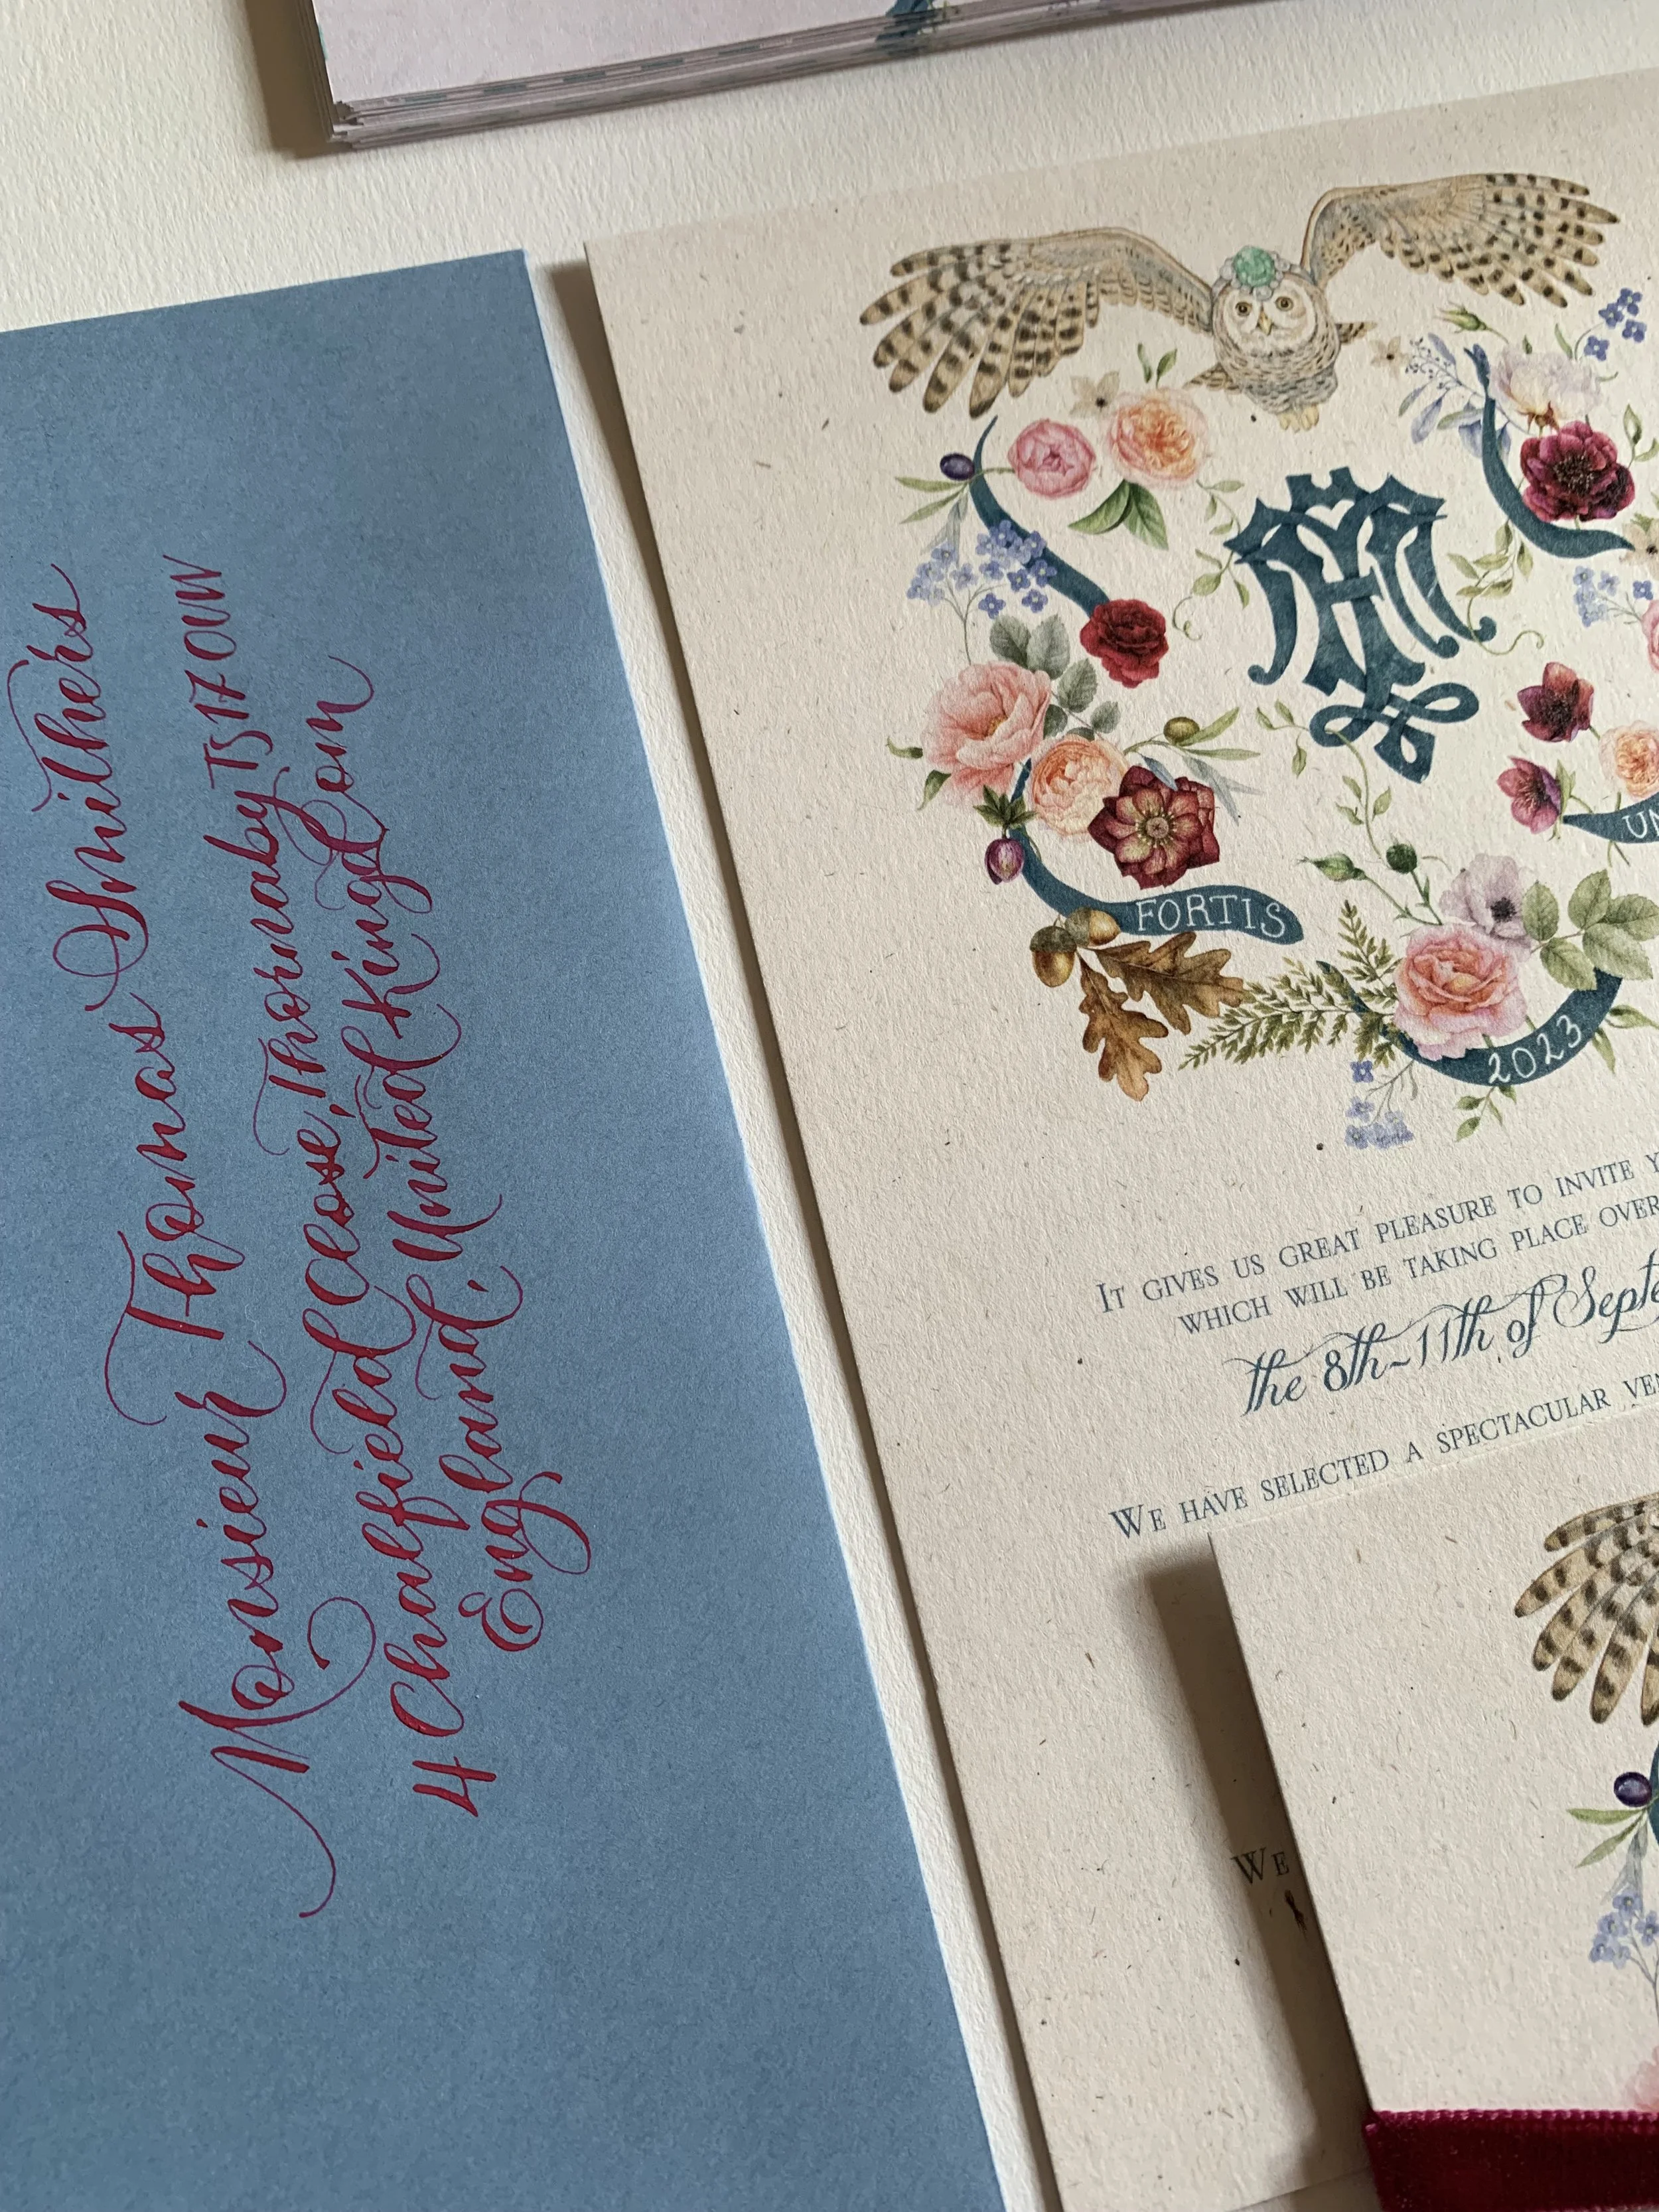 Monsieur Thomas Smithers
4 Chalfield Close, Thornaby TS17 0UW
England, United Kingdom
FORTIS
2023
IT GIVES US GREAT PLEASURE TO INVITE
WHICH WILL BE TAKING PLACE OVER
the 8th~11th of
WE HAVE SELECTED A SPECTACULAR
WE